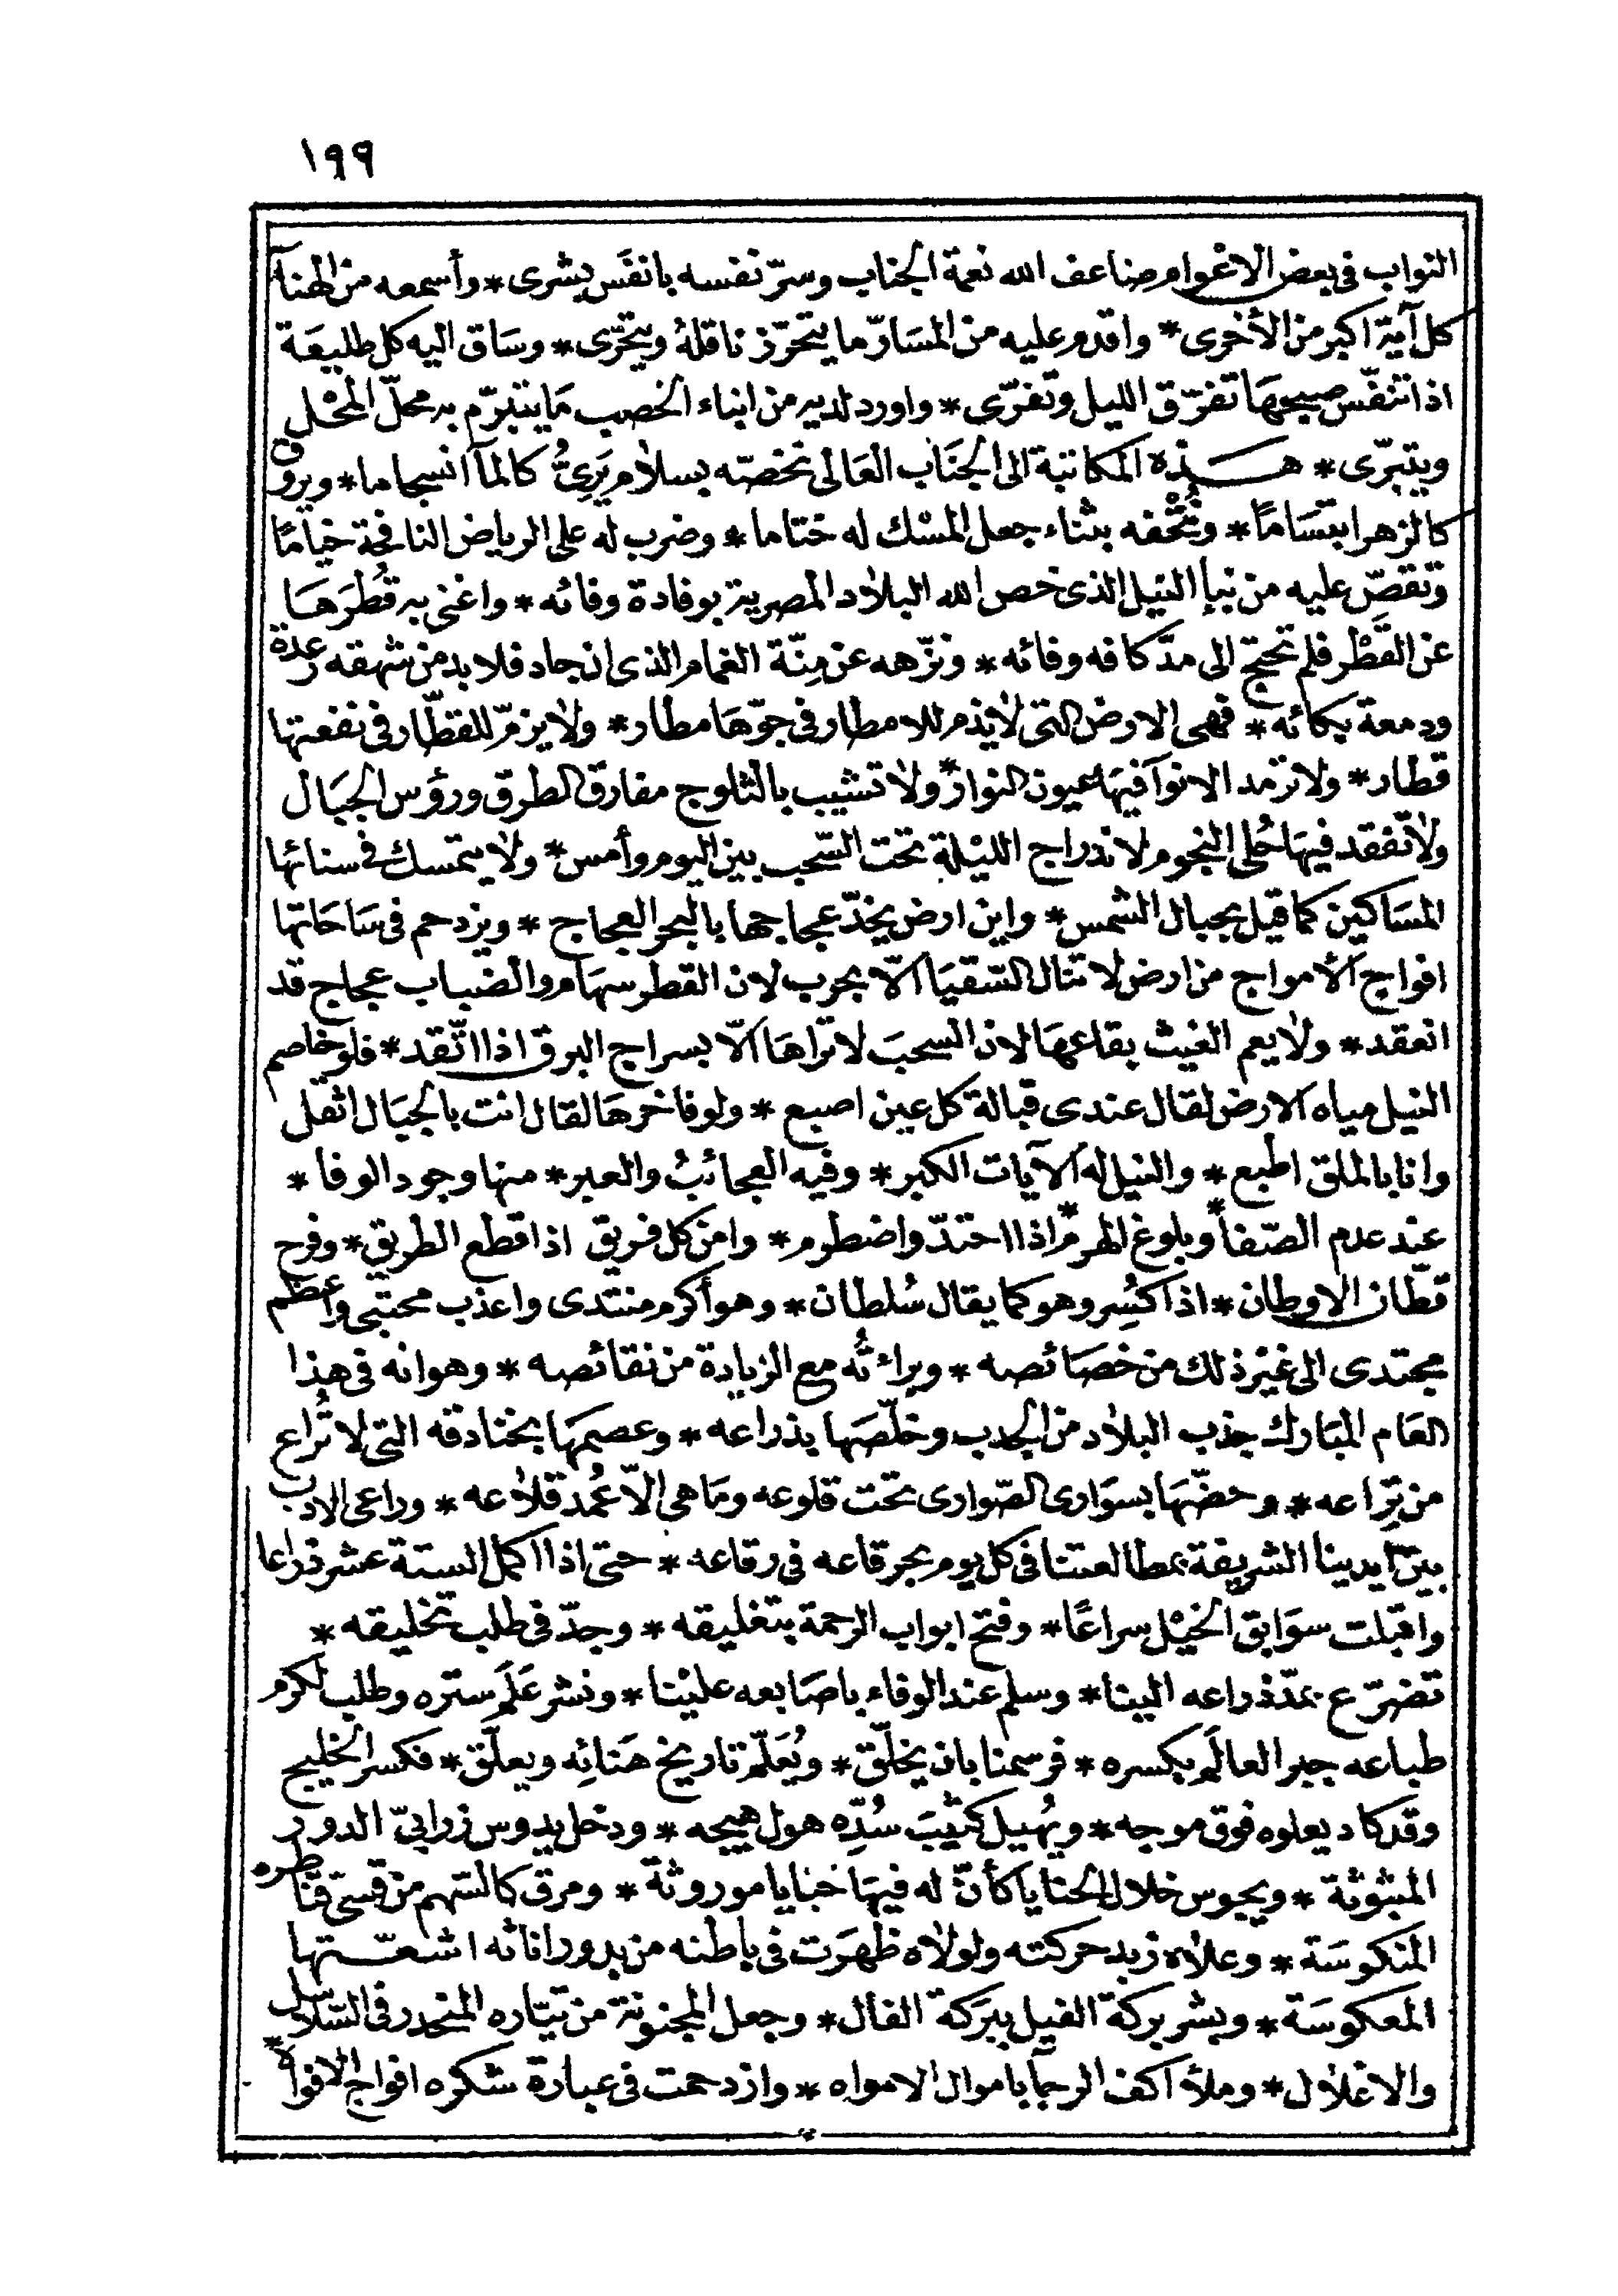 ١٩٩
النواب فى بعض الاعوام ضاعف الله نعمة الجناب وسرّ نفسه بانفَس بشرى * وأسمعه من الهنآ
كل آية اكبر من الأخرى * واقدم عليه من المسَارّ ما يتحرّز ناقلهُ ويتحرّى * وسَاق اليه كل طليعَة
اذا تنفّس صبحهَا تفرّق الليل وتفرّى * واورد لديه من انباء الخصب مَا يتبرّم به محلّ المَحْل
ويتبرّى * هـــذه المكاتبة الى الجنَاب العَالى نخصّه بسلام يَرِىُّ كالمآ انسجاما * ويروق
كالزهر ابتسَامًا * ونُتْحفه بثناء جعل المسْك له ختاما * وضرب له على الرياض النافحة خيامًا
ونقصّ عليه من نبإ النيل الذى خص الله البلاد المصرية بوفادة وفائه * واغنى به قُطرَهَا
عن القَطْر فلم تحتج الى مدّ كافه وفائه * ونزّهه عن مِنّة الغمام الذى ان جاد فلا بد من شهقه رعده
ودمعة بكائه * فهى الارض التى لا يذم للامطار فى جوّهَا مطار * ولا يزمّ للقطّار فى نفعتها
قطار * ولا ترمد الانوآ فيهَا عيون النوار * ولا تشيب بالثلوج مفارق الطرق ورؤس الجبَال
ولا تفقد فيهَا حُلى النجوم لاندراج الليْلة تحت السّحب بين اليوم وأمس * ولا يتمسك فى سنائها
المسَاكين كما قيل بحبال الشمس * واين ارض يخدّ عجاجها بالبحر العجاج * ويزدحم فى سَاحَاتها
افواج الأمواج من ارض لا تنال السّقيَا الّا بحرب لان القطر سهَام والضباب عجاج قد
انعقد * ولا يعم الغيث بقاعهَا لان السحبَ لا تراهَا الّا بسراج البرق اذا اتّقد * فلو خاصم
النيل مياه الارض لقال عندى قبالة كل عين اصبع * ولو فاخرهَا لقال انت بالجبَال اثقل
وانا بالملق اطبع * والنيل له الآيات الكبر * وفيه العجائبُ والعبر * منها وجود الوفا *
عند عدم الصّفا * وبلوغ الهرم * اذا احتدّ واضطرم * وامن كل فريق اذا قطع الطريق * وفرح
قطّان الاوطان * اذا كُسِر وهو كما يقال سُلطان * وهو أكرم منتدى واعذب مجتبى واعظم
مجتدى الى غيْر ذلك من خصَائصه * وبراءتُه مع الزيادة من نقائصه * وهو انه فى هذا
العَام المبَارك جذب البلاد من الجدب وخلّصَها بذراعه * وعصمهَا بخنادقه التى لا تُراع
من تِرّاعه * وحضّهَا بسوَارى الصّوارى تحت قلوعه ومَا هى الّا عُمد قلاعه * وراعى الادب
بيْن ايدينا الشريفة بمطالعتنا فى كل يوم بحر قاعه فى رقاعه * حتى اذا اكمل الستة عشر ذراعا
واقبلت سوَابق الخيْل سراعًا * وفتح ابواب الرحمة بتغليقه * وجدّ فى طلب تخليقه *
تضرّع بمدّ ذراعه الينا * وسلم عند الوفاء باصَابعه عليْنا * ونشر عَلَم ستره وطلب لكرم
طباعه جبر العالَم بكسره * فرسمنا بان يخلّق * ويُعَلّم تاريخ هَنائه ويعلّق * فكسر الخليج
وقد كاد يعلوه فوق موجه * ويُهيل كثيبَ سُدّه هول هيجه * ودخل يدوس زرابىّ الدور
المبثوثة * ويجوس خلال الحنايا كأنّ له فيهَا خبايا موروثة * ومرق كالسّهم من قسىّ قناطره
المنكوسَة * وعلاه زبد حركته ولولاه ظهَرت فى باطنه من بدور اناثه اشعّــتها
المعكوسَة * وبشر بركة الفيل ببَركة الفال * وجعل المجنونة من تيّاره المنحدر فى السّلاسل
والاغلال * وملأ اكف الرجآ باموال الامواه * وازدحمت فى عبارة شكره افواج الافواه *